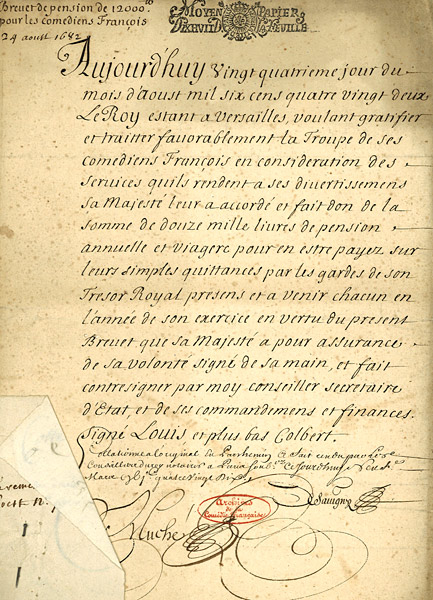 Brevet de pension de 12000lt
pour les comediens François
24 aoust 1682
MOYEN PAPIER
LA FEUILLE
Aujourd'huy Vingt quatrieme jour du
mois d'Aoust mil six cens quatre vingt deux
Le Roy estant a Versailles, voulant gratifier
et traitter favorablement la Troupe de ses
comediens François en consideration des
services quils rendent a ses divertissemens
sa Majesté leur a accordé et fait don de la
somme de douze mille livres de pension
annuelle et viagere pour en estre payez sur
leurs simples quittances par les gardes de son
Tresor Royal presens et a venir chacun en
l'année de son exercice en vertu du present
Brevet, que sa Majesté a pour assurance
de sa volonté signé de sa main, et fait
contresigner par moy conseiller secretaire
d'Etat, et de ses commandemens et finances.
Signé Louis et plus bas Colbert.
Collationné a l'original en Parchemin ce fait rendu par les
Conseillers du roy notaires a Paris
quatre Vingt
Savigny
Archives
de la
Comédie Française